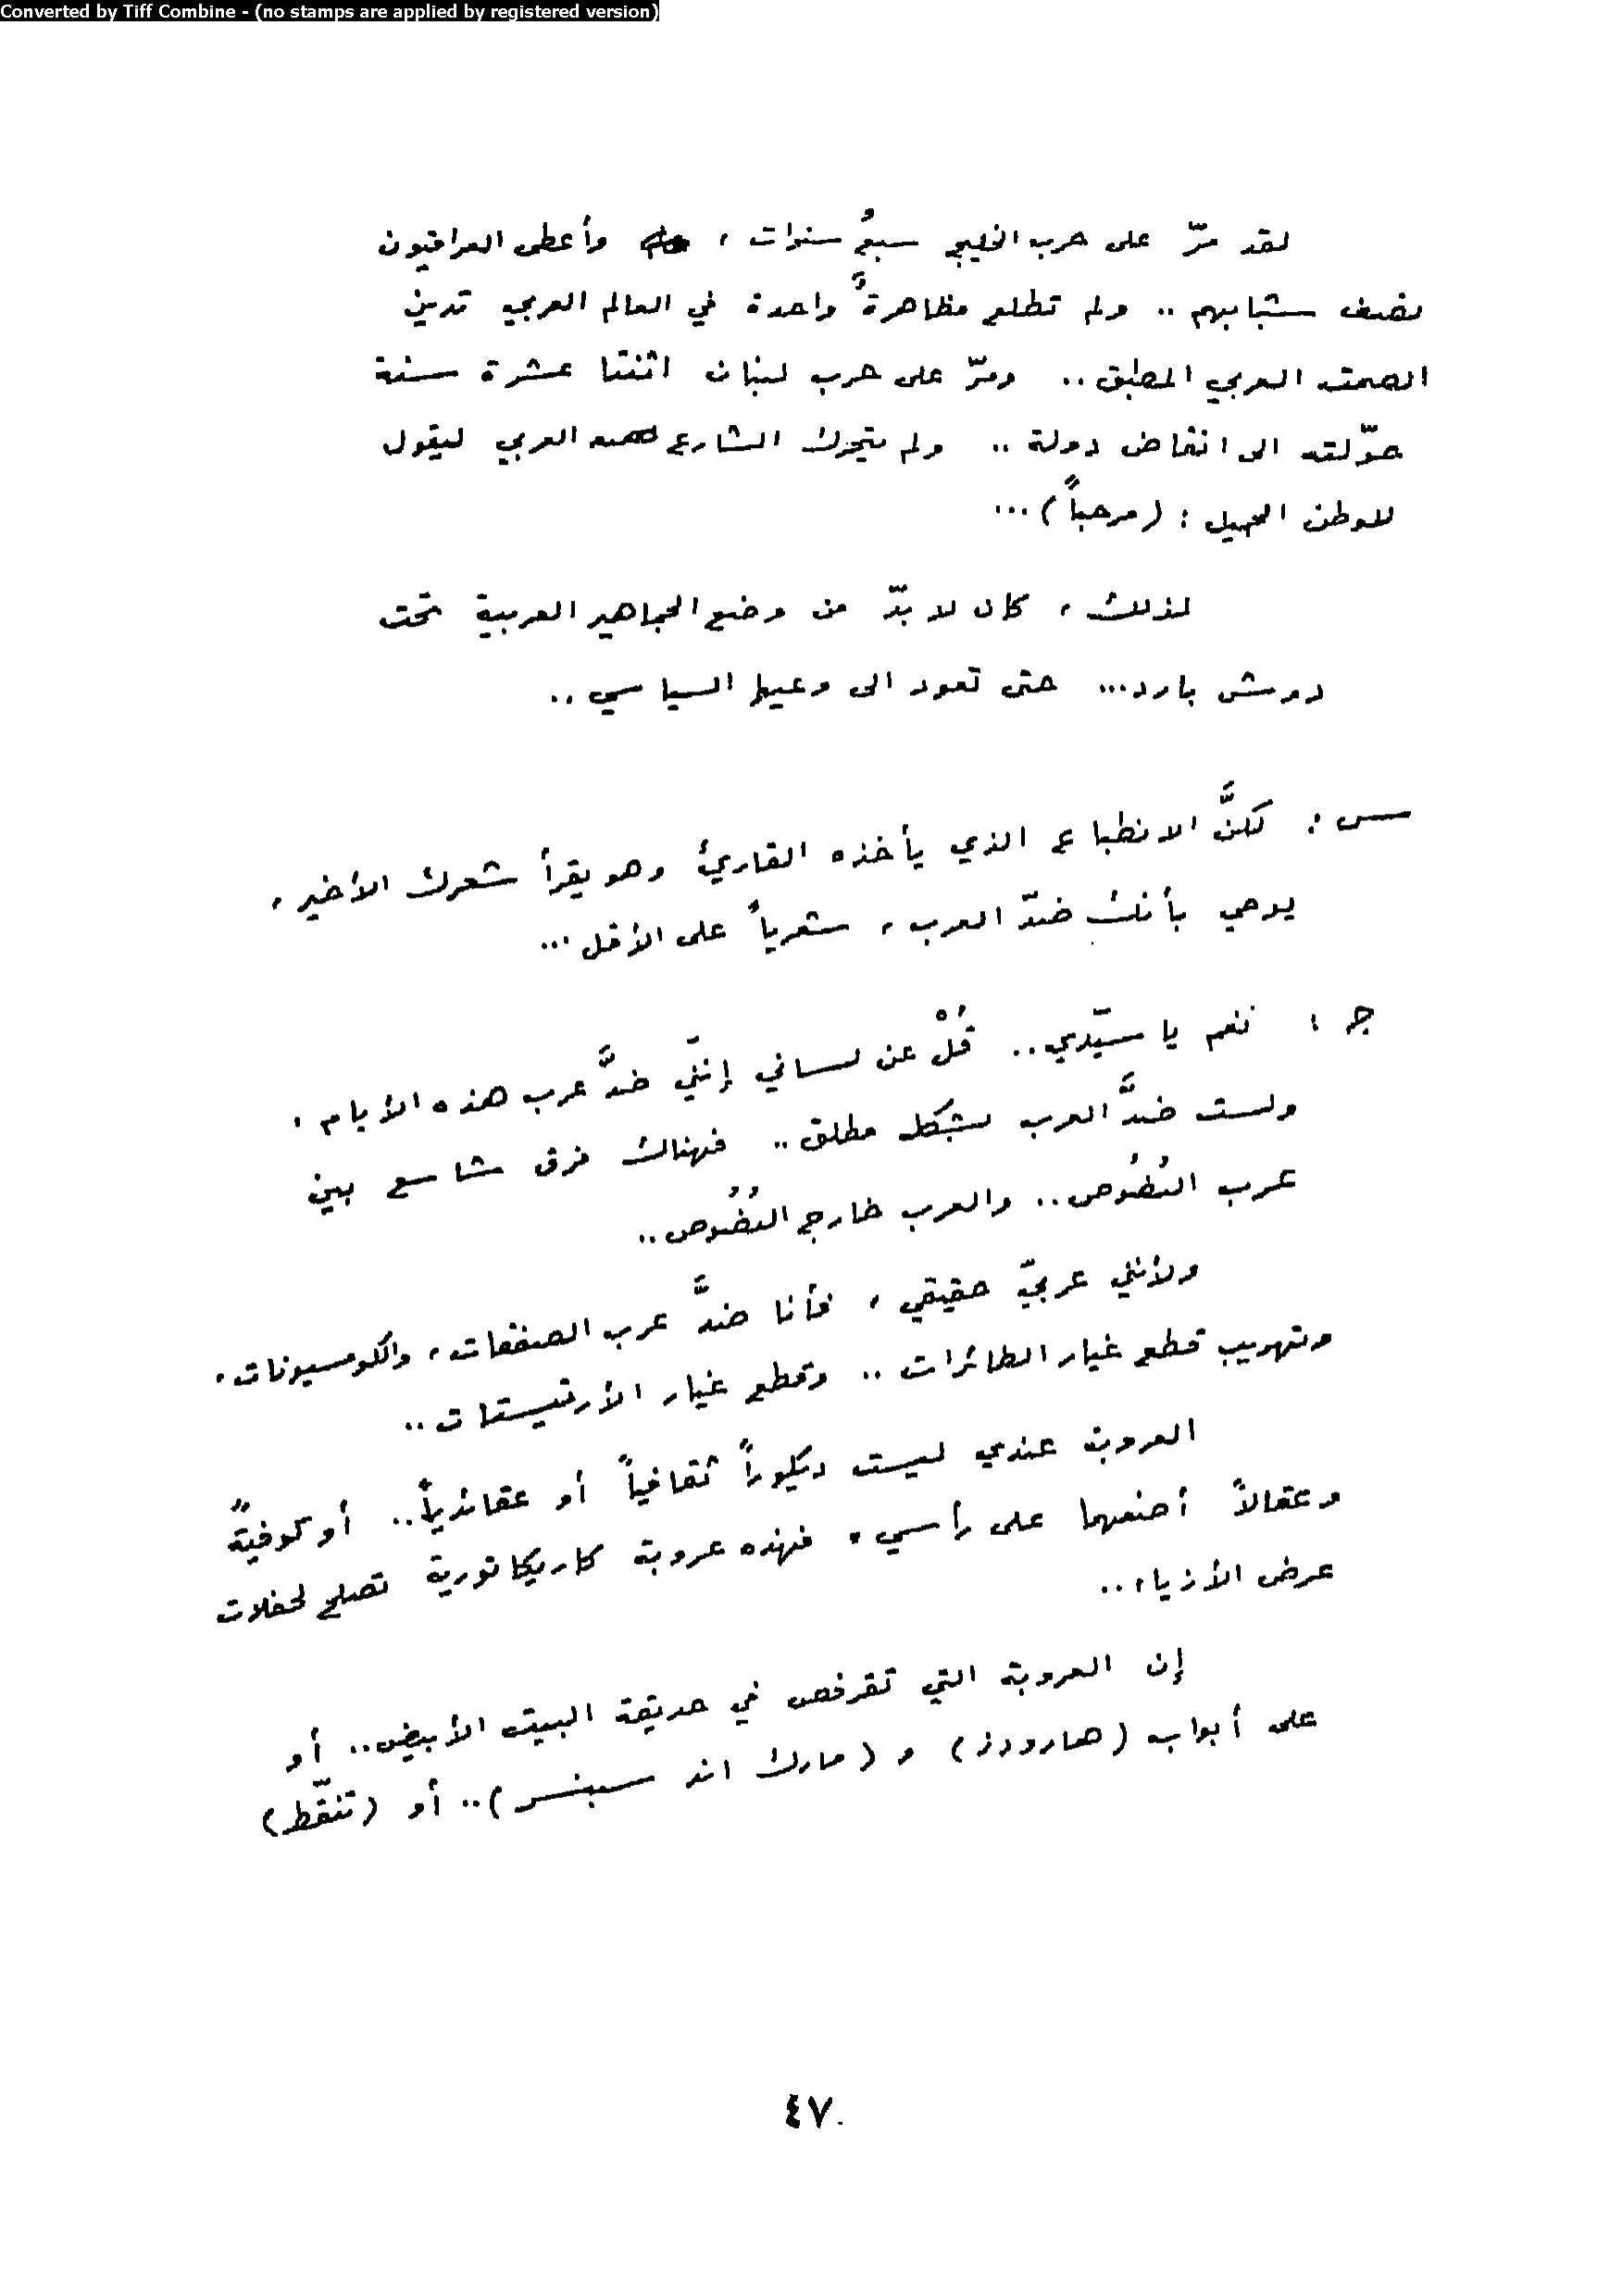 Converted by Tiff Combine - (no stamps are applied by registered version)
لقد مرّ على حرب الخليج سبعُ سنوات ، وأعطى العراقيون
نصف شبابهم .. ولم تطلع مظاهرةٌ واحدة في العالم العربي تدين
الصمت العربي المطبق .. ومرّ على حرب لبنان اثنتا عشرة سنة
حوّلته الى انقاض دولة .. ولم يتحرك الشارع العربي ليقول
للوطن الجميل : (مرحباً) ...
لذلك ، كان لا بدّ من وضع الجماهير العربية تحت
دوش بارد... حتى تعود الى وعيها السياسي ..
س : لكنَّ الانطباع الذي يأخذه القارئ وهو يقرأ شعرك الأخير ،
يوحي بأنك ضدّ العرب ، شعرياً على الأقل ...
ج : نعم يا سيّدي .. قُلْ عن لساني إنّني ضدَّ عرب هذه الأيام ،
ولست ضدَّ العرب بشكل مطلق .. فهناك فرق شاسع بين
عرب النُصُوص .. والعرب خارج النُصُوص ..
ولأنني عربيّ حقيقي ، فأنا ضدَّ عرب الصفقات ، والكومسيونات ،
وتهريب قطع غيار الطائرات .. وقطع غيار الأرتيستات ..
العروبة عندي ليست ديكوراً ثقافياً أو عقائدياً .. أو كوفيةً
وعقالاً أضعهما على رأسي ، فهذه عروبة كاريكاتورية تصلح لحفلات
عرض الأزياء ..
إن العروبة التي تقرفص في حديقة البيت الأبيض .. أو
على أبواب (هارودز) و (مارك اند سبنسر) .. أو (تنقّط)
٤٧